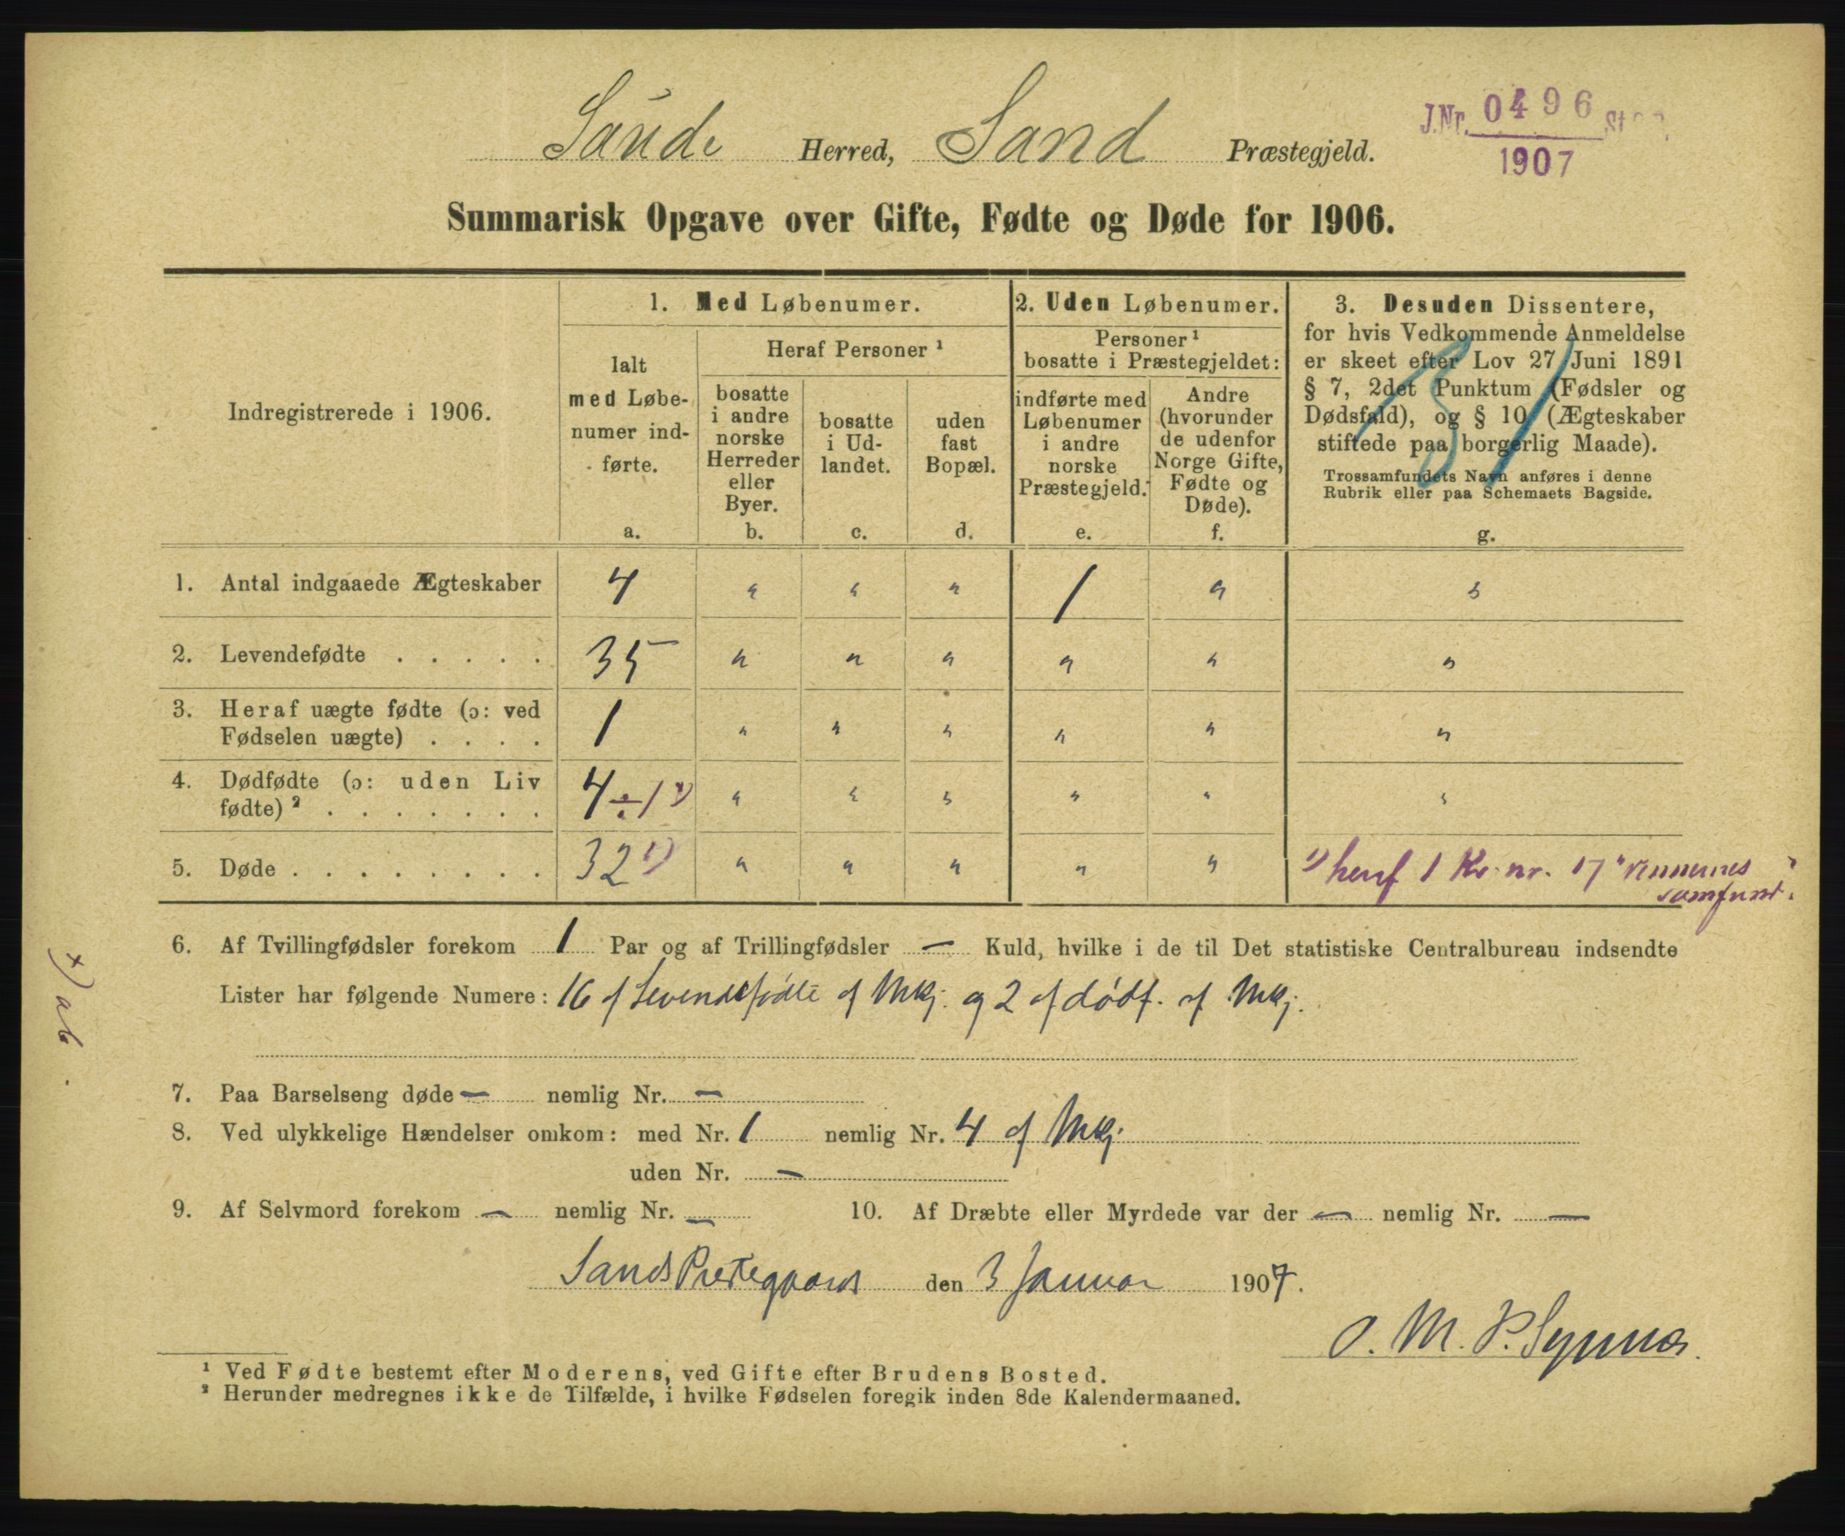 Saude Herred, Sand Præstegjeld.
J.Nr. 0496
1907
Summarisk Opgave over Gifte, Fødte og Døde for 1906.
Indregistrerede i 1906.
1. Med Løbenumer.
Ialt
med Løbe-
numer ind-
førte.
a.
Heraf Personer ¹
bosatte
i andre
norske
Herreder
eller
Byer.
b.
bosatte
i Ud-
landet.
c.
uden
fast
Bopæl.
d.
2. Uden Løbenumer.
Personer ¹
bosatte i Præstegjeldet:
indførte med
Løbenumer
i andre
norske
Præstegjeld.
e.
Andre
(hvorunder
de udenfor
Norge Gifte,
Fødte og
Døde).
f.
3. Desuden Dissentere,
for hvis Vedkommende Anmeldelse
er skeet efter Lov 27 Juni 1891
§ 7, 2det Punktum (Fødsler og
Dødsfald), og § 10 (Ægteskaber
stiftede paa borgerlig Maade).
Trossamfundets Navn anføres i denne
Rubrik eller paa Schemaets Bagside.
g.
1. Antal indgaaede Ægteskaber 4 " " " 1 " "
2. Levendefødte . . . . . 35 " " " " " "
3. Heraf uægte fødte (ɔ: ved
Fødselen uægte) . . . . 1 " " " " " "
4. Dødfødte (ɔ: uden Liv
fødte) ² . . . . . . . 4 ÷ 1 ˣ) " " " " " "
5. Døde . . . . . . . . 32 ¹) " " " " " ¹) heraf 1 Kv. nr. 17 "Vennernes
samfund".
6. Af Tvillingfødsler forekom 1 Par og af Trillingfødsler — Kuld, hvilke i de til Det statistiske Centralbureau indsendte
Lister har følgende Numere: 16 af Levendefødte af Mkj. og 2 af dødf. af Mkj.
7. Paa Barselseng døde — nemlig Nr. —
8. Ved ulykkelige Hændelser omkom: med Nr. 1 nemlig Nr. 4 af Mkj.
uden Nr. —
9. Af Selvmord forekom — nemlig Nr. — 10. Af Dræbte eller Myrdede var der — nemlig Nr. —
Sands Prestegaard den 3 Januar 1907.
O. M. P. Synnes.
¹ Ved Fødte bestemt efter Moderens, ved Gifte efter Brudens Bosted.
² Herunder medregnes ikke de Tilfælde, i hvilke Fødselen foregik inden 8de Kalendermaaned.
x) ab.